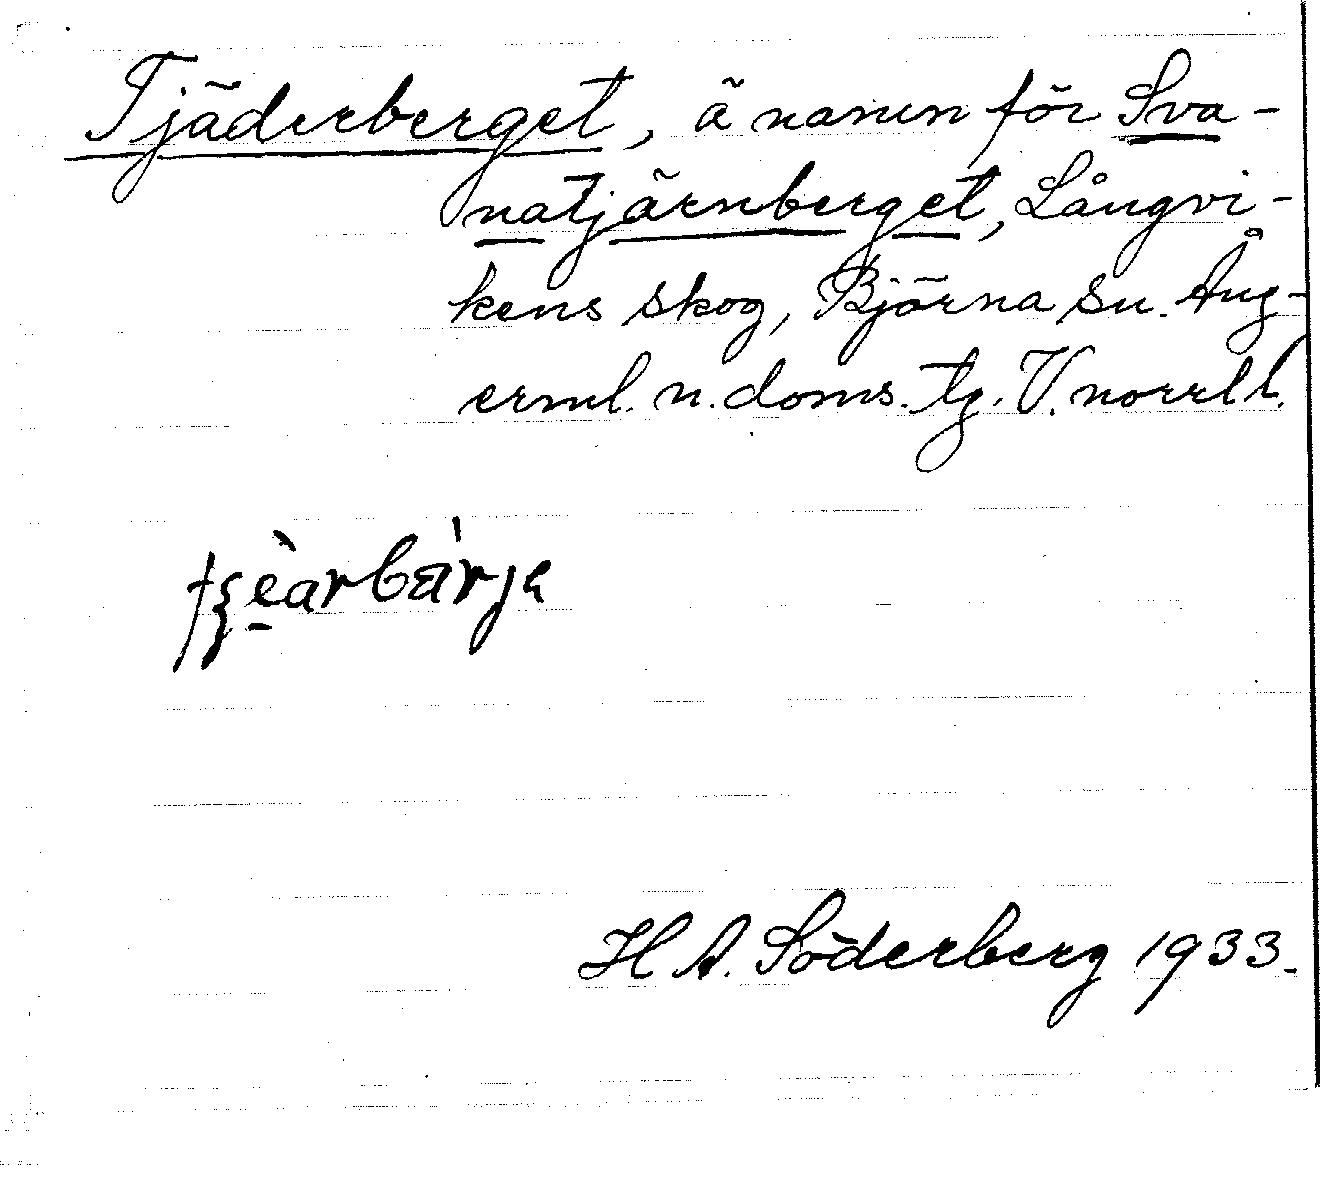 Tjäderberget, ä namn för Sva-
natjärnberget, Långvi-
kens skog, Björna sn. Ång-
erml. n. doms. tg. V. norrl l.
H A. Söderberg 1933.